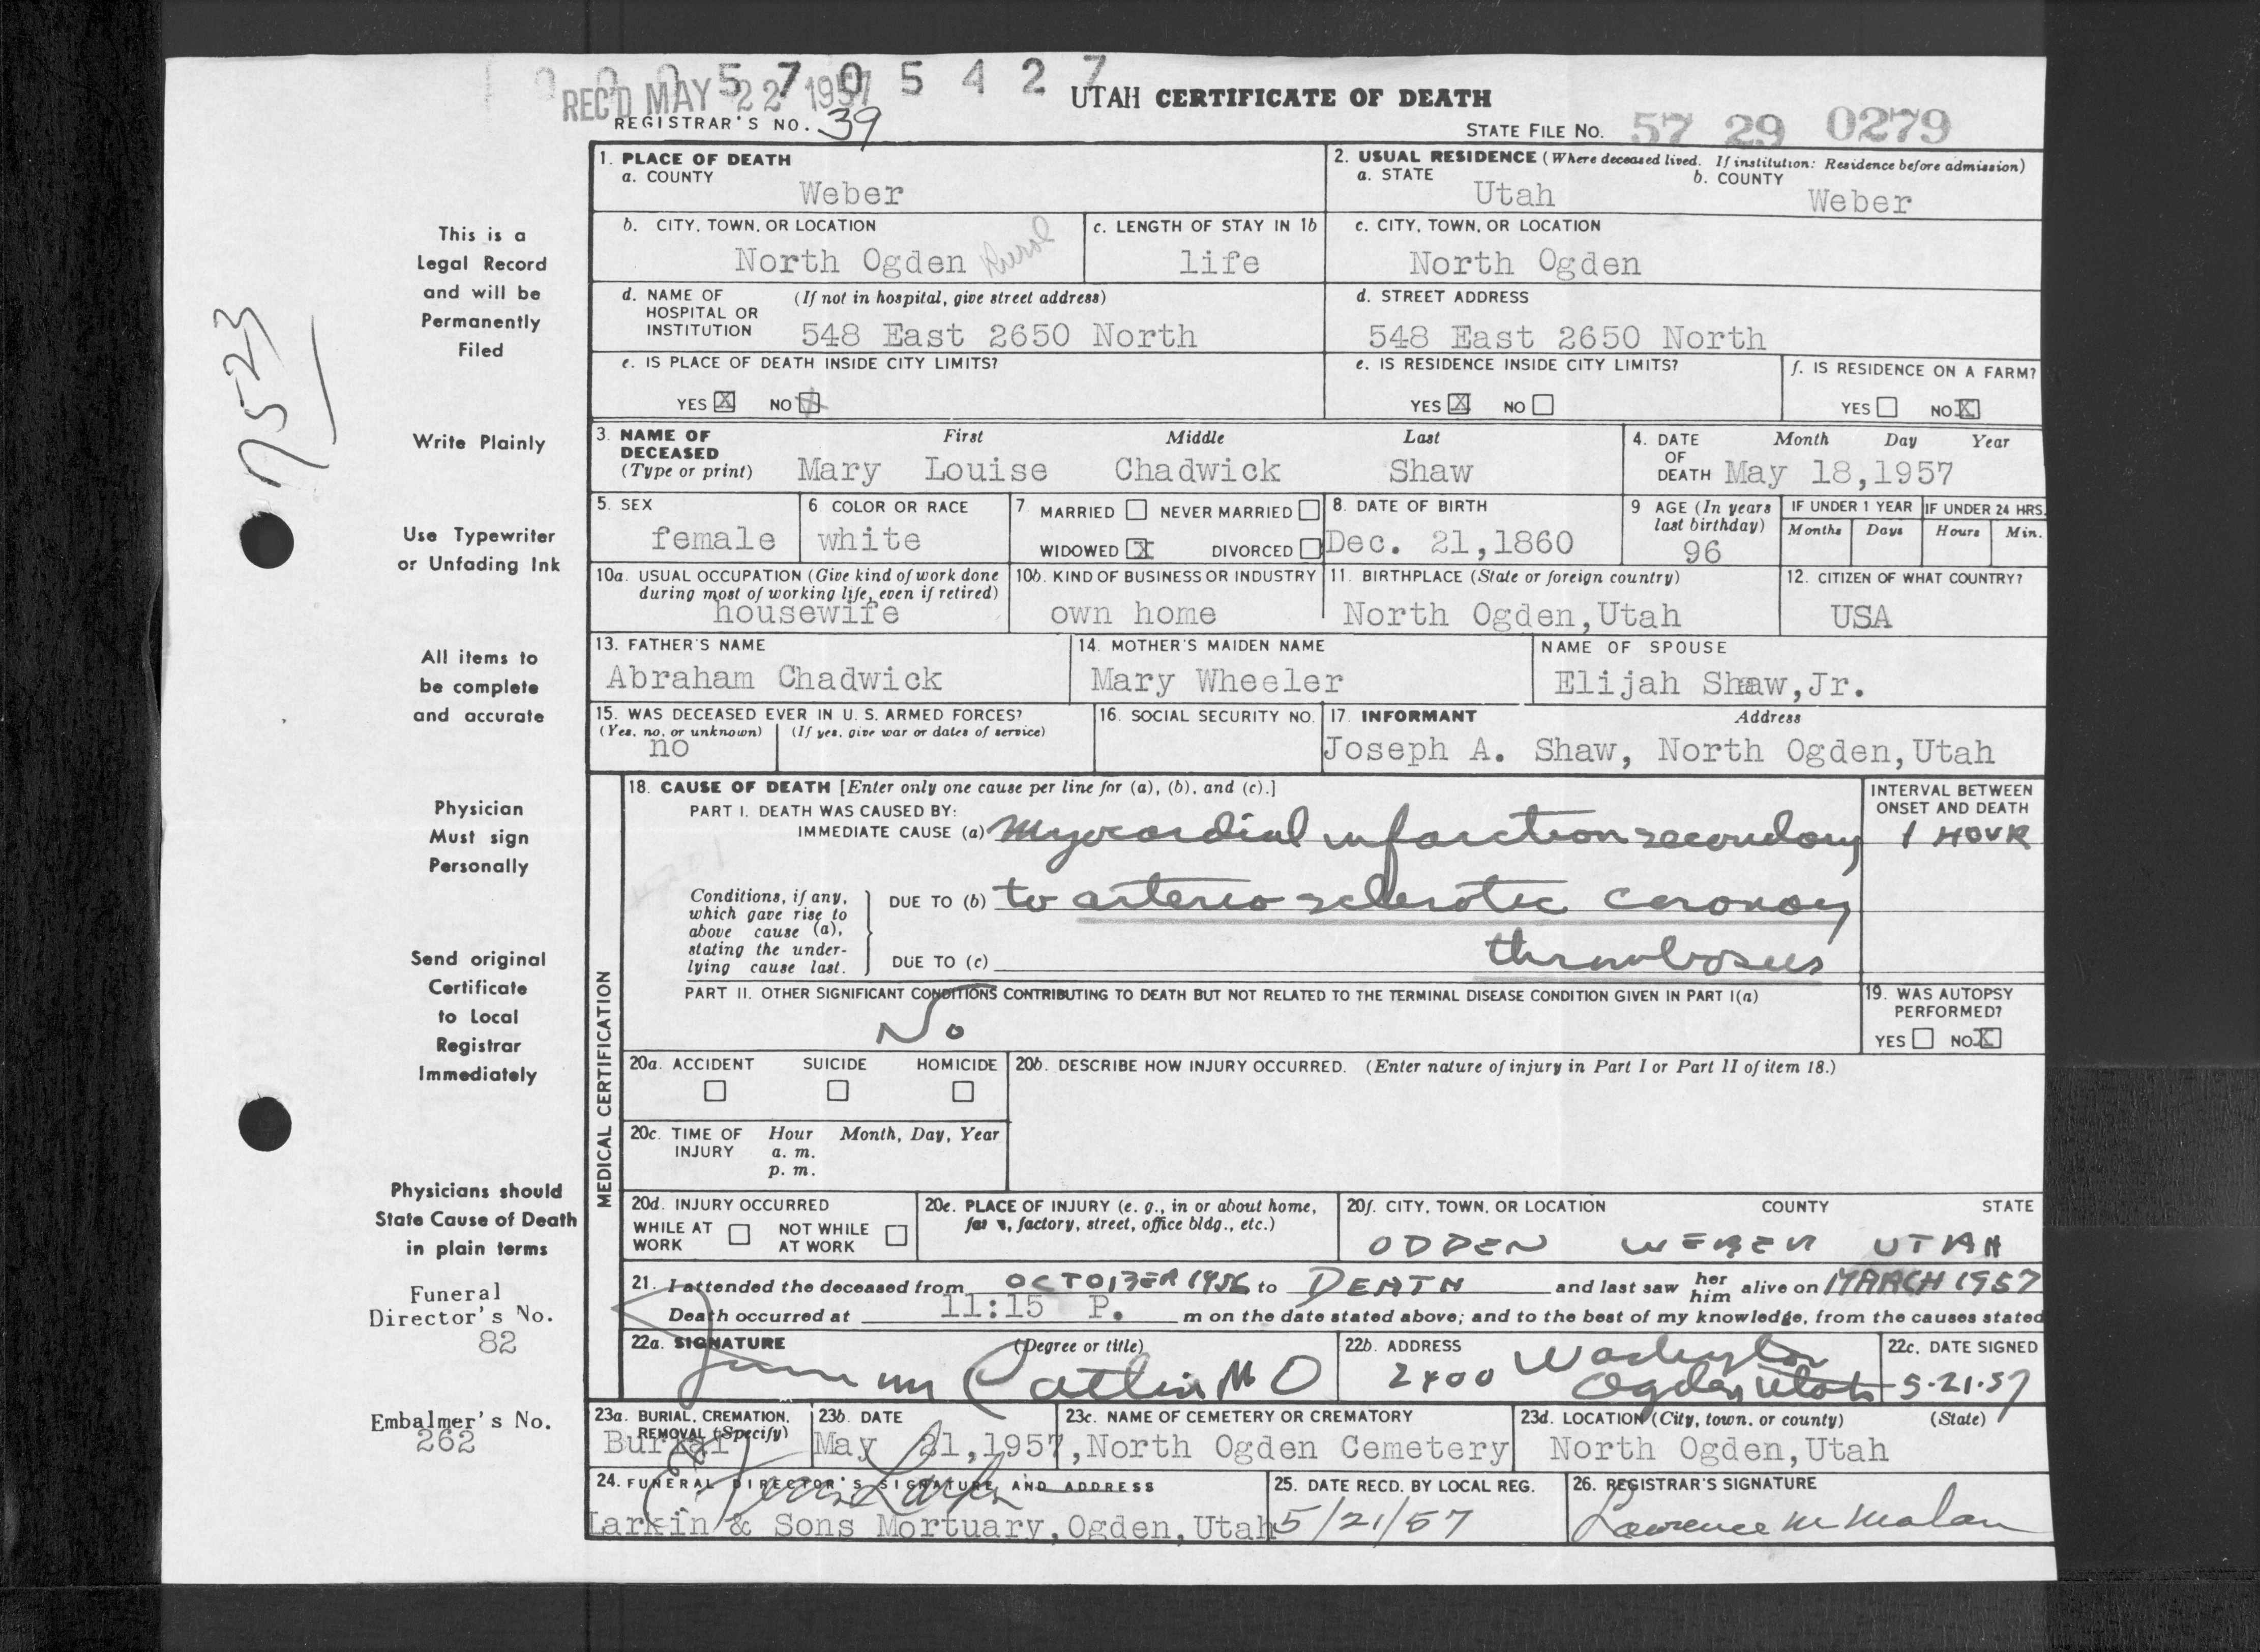 0 0 0 5 7 0 5 4 2 7
REC'D MAY 22 1957
UTAH CERTIFICATE OF DEATH
REGISTRAR'S NO. 39
STATE FILE NO. 57 29 0279
7523
This is a
Legal Record
and will be
Permanently
Filed
Write Plainly
Use Typewriter
or Unfading Ink
All items to
be complete
and accurate
Physician
Must sign
Personally
Send original
Certificate
to Local
Registrar
Immediately
Physicians should
State Cause of Death
in plain terms
Funeral
Director's No.
82
Embalmer's No.
262
1. PLACE OF DEATH
a. COUNTY
Weber
2. USUAL RESIDENCE (Where deceased lived. If institution: Residence before admission)
a. STATE b. COUNTY
Utah Weber
b. CITY, TOWN, OR LOCATION
North Ogden Rural
c. LENGTH OF STAY IN 1b
life
c. CITY, TOWN, OR LOCATION
North Ogden
d. NAME OF (If not in hospital, give street address)
HOSPITAL OR
INSTITUTION 548 East 2650 North
d. STREET ADDRESS
548 East 2650 North
e. IS PLACE OF DEATH INSIDE CITY LIMITS?
YES X NO X
e. IS RESIDENCE INSIDE CITY LIMITS?
YES X NO
f. IS RESIDENCE ON A FARM?
YES NO X
3. NAME OF First Middle Last
DECEASED
(Type or print) Mary Louise Chadwick Shaw
4. DATE Month Day Year
OF
DEATH May 18,1957
5. SEX
female
6. COLOR OR RACE
white
7. MARRIED NEVER MARRIED
WIDOWED X DIVORCED
8. DATE OF BIRTH
Dec. 21,1860
9. AGE (In years
last birthday)
96
IF UNDER 1 YEAR
Months Days
IF UNDER 24 HRS.
Hours Min.
10a. USUAL OCCUPATION (Give kind of work done
during most of working life, even if retired)
housewife
10b. KIND OF BUSINESS OR INDUSTRY
own home
11. BIRTHPLACE (State or foreign country)
North Ogden,Utah
12. CITIZEN OF WHAT COUNTRY?
USA
13. FATHER'S NAME
Abraham Chadwick
14. MOTHER'S MAIDEN NAME
Mary Wheeler
NAME OF SPOUSE
Elijah Shaw,Jr.
15. WAS DECEASED EVER IN U. S. ARMED FORCES?
(Yes, no, or unknown) (If yes, give war or dates of service)
no
16. SOCIAL SECURITY NO.
17. INFORMANT Address
Joseph A. Shaw, North Ogden,Utah
MEDICAL CERTIFICATION
18. CAUSE OF DEATH [Enter only one cause per line for (a), (b), and (c).]
PART I. DEATH WAS CAUSED BY:
IMMEDIATE CAUSE (a) Myocardial infarction secondary
INTERVAL BETWEEN
ONSET AND DEATH
1 HOUR
4201
Conditions, if any,
which gave rise to
above cause (a),
stating the under-
lying cause last.
DUE TO (b) to arterio sclerotic coronary
DUE TO (c) thrombosis
PART II. OTHER SIGNIFICANT CONDITIONS CONTRIBUTING TO DEATH BUT NOT RELATED TO THE TERMINAL DISEASE CONDITION GIVEN IN PART I(a)
No
19. WAS AUTOPSY
PERFORMED?
YES NO X
20a. ACCIDENT SUICIDE HOMICIDE
20b. DESCRIBE HOW INJURY OCCURRED. (Enter nature of injury in Part I or Part II of item 18.)
20c. TIME OF Hour Month, Day, Year
INJURY a. m.
p. m.
20d. INJURY OCCURRED
WHILE AT NOT WHILE
WORK AT WORK
20e. PLACE OF INJURY (e. g., in or about home,
farm, factory, street, office bldg., etc.)
20f. CITY, TOWN, OR LOCATION COUNTY STATE
ODDEN WEBER UTAH
21. I attended the deceased from OCTOBER 1956 to DEATH and last saw her him alive on MARCH 1957
Death occurred at 11:15 P. m on the date stated above; and to the best of my knowledge, from the causes stated
22a. SIGNATURE (Degree or title)
Catlin MD
22b. ADDRESS
2400 Washington
Ogden Utah
22c. DATE SIGNED
5-21-57
23a. BURIAL, CREMATION,
REMOVAL (Specify)
Burial
23b. DATE
May 21,1957,
23c. NAME OF CEMETERY OR CREMATORY
North Ogden Cemetery
23d. LOCATION (City, town, or county) (State)
North Ogden,Utah
24. FUNERAL DIRECTOR'S SIGNATURE AND ADDRESS
Larkin & Sons Mortuary,Ogden,Utah
25. DATE RECD. BY LOCAL REG.
5/21/57
26. REGISTRAR'S SIGNATURE
Lawrence M Malan